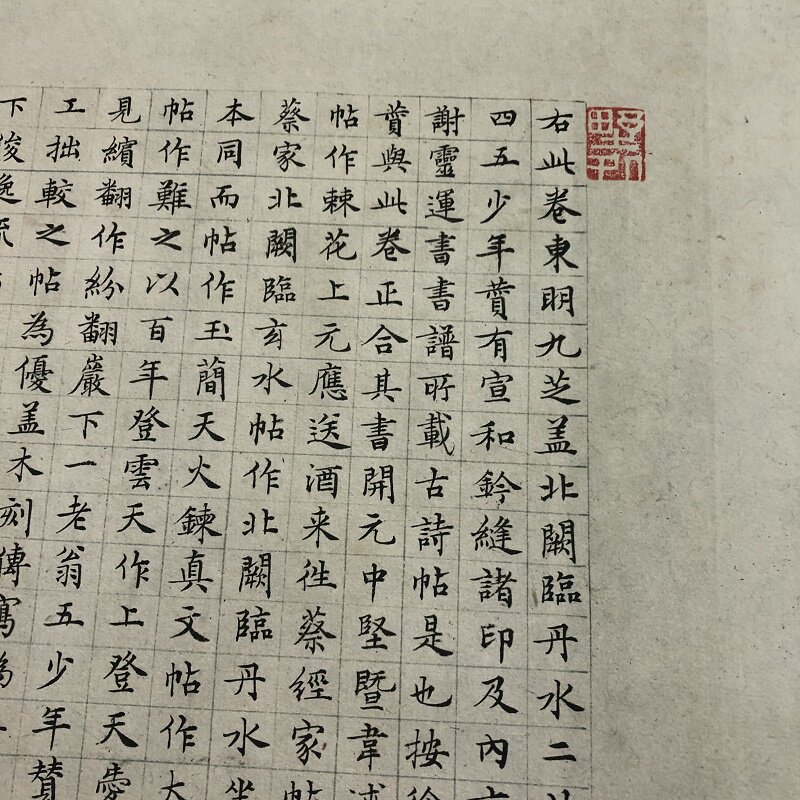 右此卷東明九芝盖北闕臨丹水二
四五少年賛有宣和鈐縫諸印及內
謝靈運書書譜所載古詩帖是也按
賛與此卷正合其書開元中堅暨韋述
帖作棘花上元應送酒来往蔡經家帖
蔡家北闕臨玄水帖作北闕臨丹水坐
本同而帖作玉簡天火鍊真文帖作大
帖作難之以百年登雲天作上登天
見繽翻作紛翻巖下一老翁五少年賛
工拙較之帖為優盖木刻傳寫
下